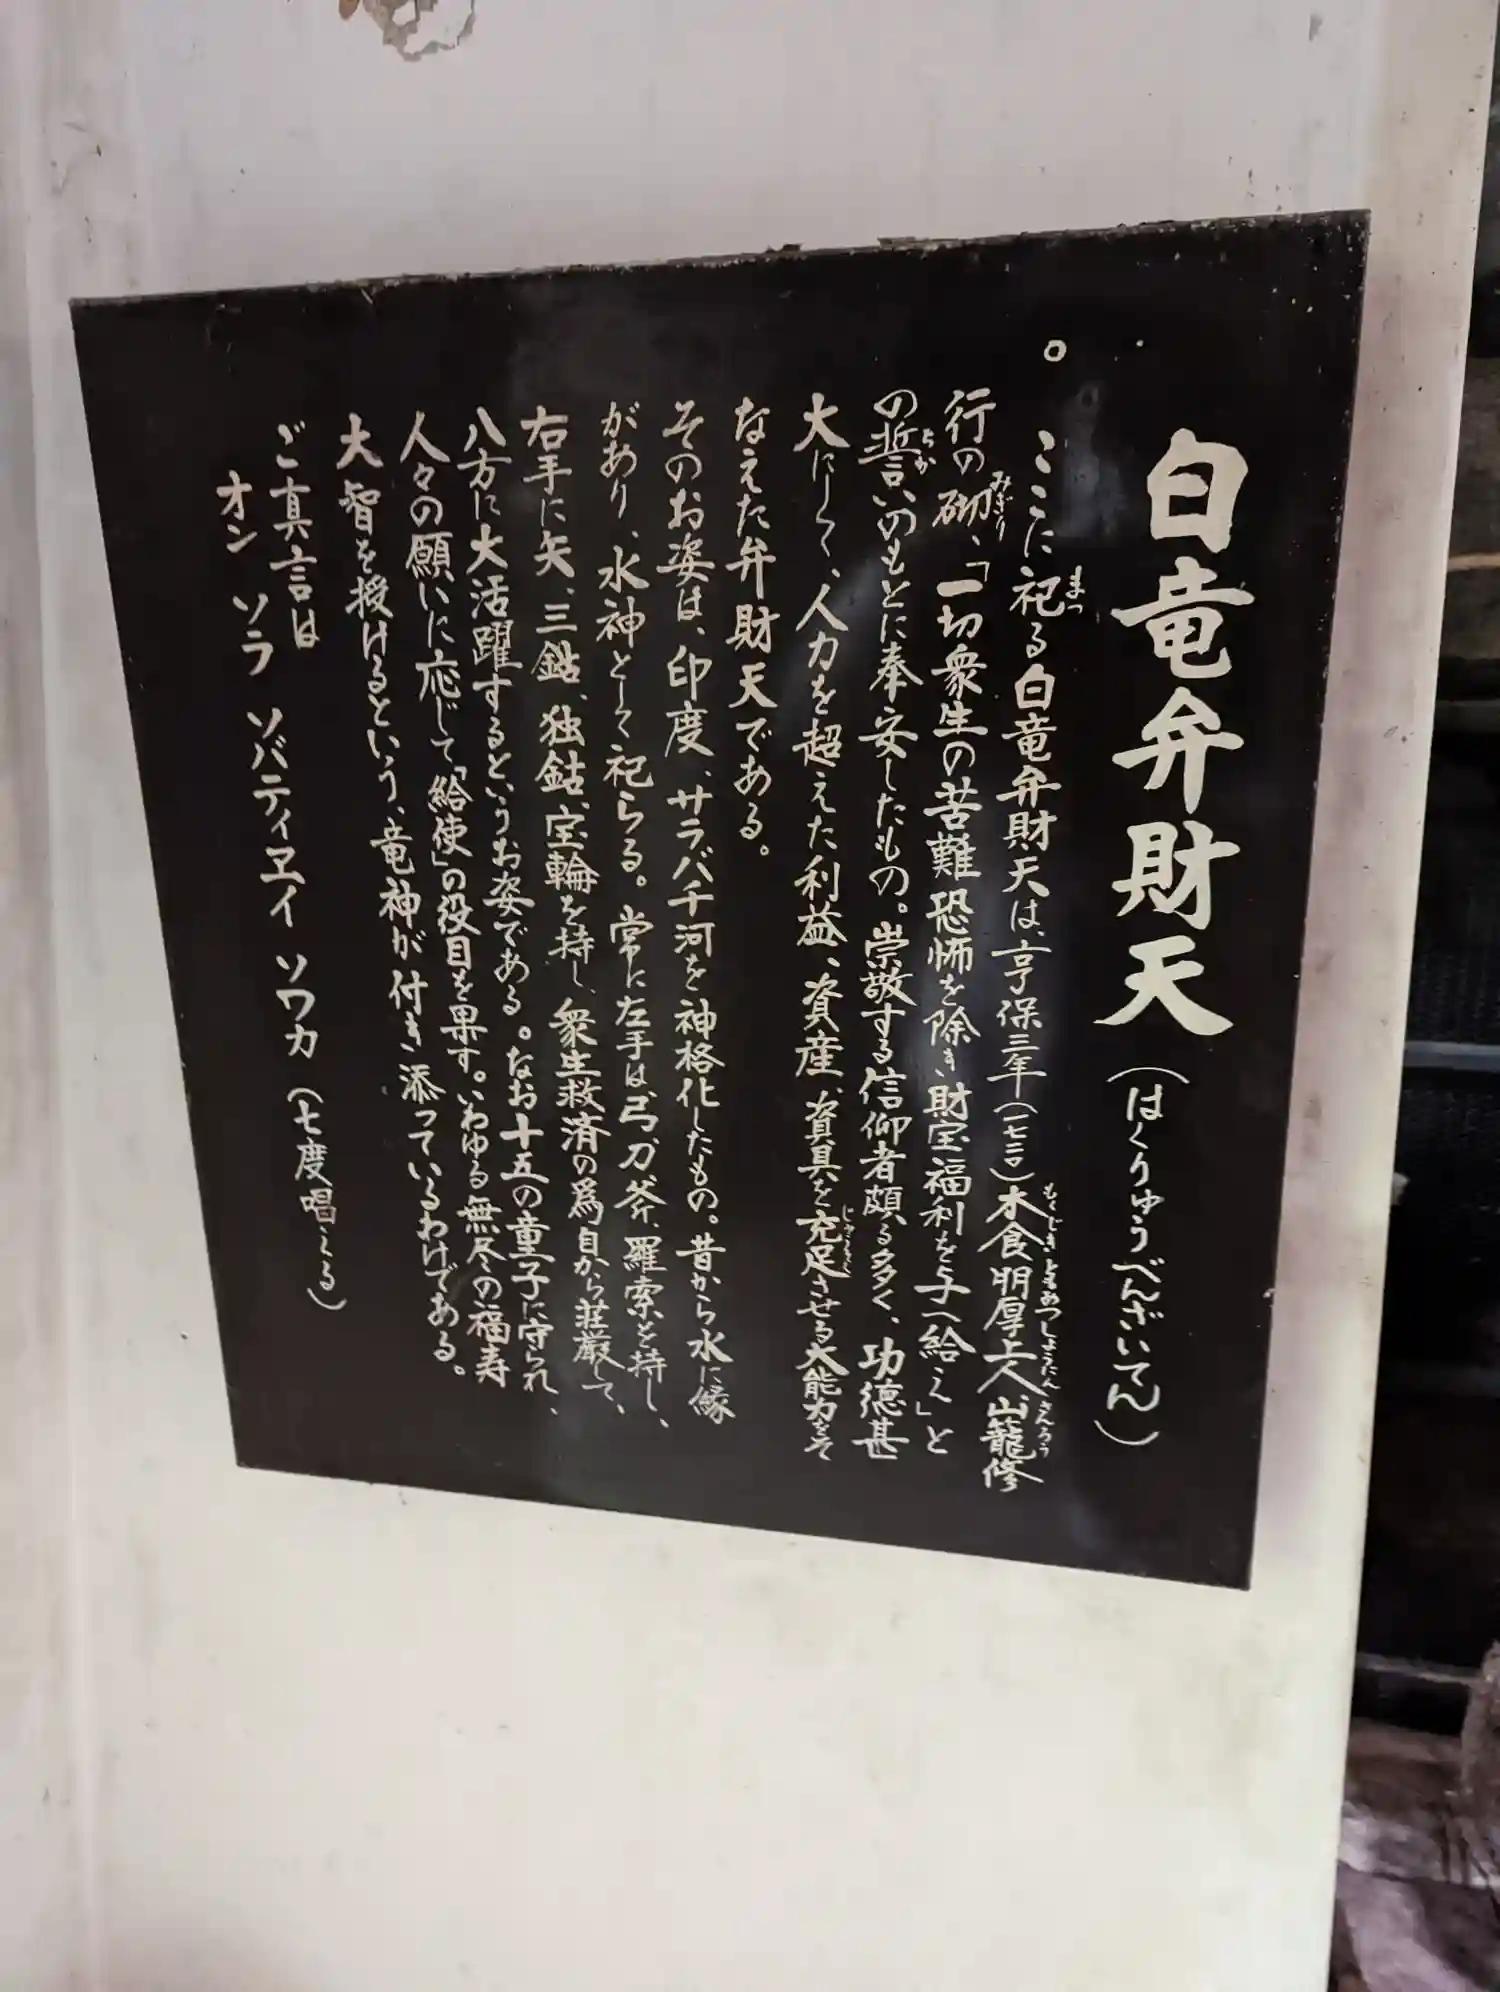 白竜弁財天（はくりゅうべんざいてん）
ここに祀る白竜弁財天は、亨保三年（一七三）木食明厚上人、山籠修
行の砌、「一切衆生の苦難恐怖を除き、財宝福利を与へ給え」と
の誓いのもとに奉安したもの。崇敬する信仰者頗る多く、功徳甚
大にして、人力を超えた利益、資産、資具を充足させる大能力をそ
なえた弁財天である。
そのお姿は、印度、サラバチ河を神格化したもの。昔から水に縁
があり、水神として祀らる。常に左手は、弓、刀、斧、羅索を持し、
右手に矢、三鈷、独鈷、宝輪を持し、衆生救済の為自から荘厳して、
八方に大活躍するというお姿である。なお十五の童子に守られ、
人々の願いに応じて「給使」の役目を果す。いわゆる無尽の福寿
大智を授けるという、竜神が付き添っているわけである。
ご真言は
オン ソラ ソバティヱイ ソワカ（七度唱える）